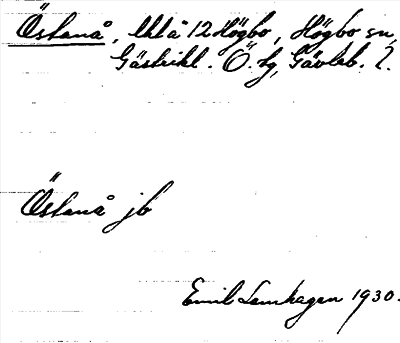 Östanå, lht å 12 Högbo, Högbo sn,
Gästrikl. Ö. tg, Gävleb. l.
Östanå jb
Emil Lamhagen 1930.